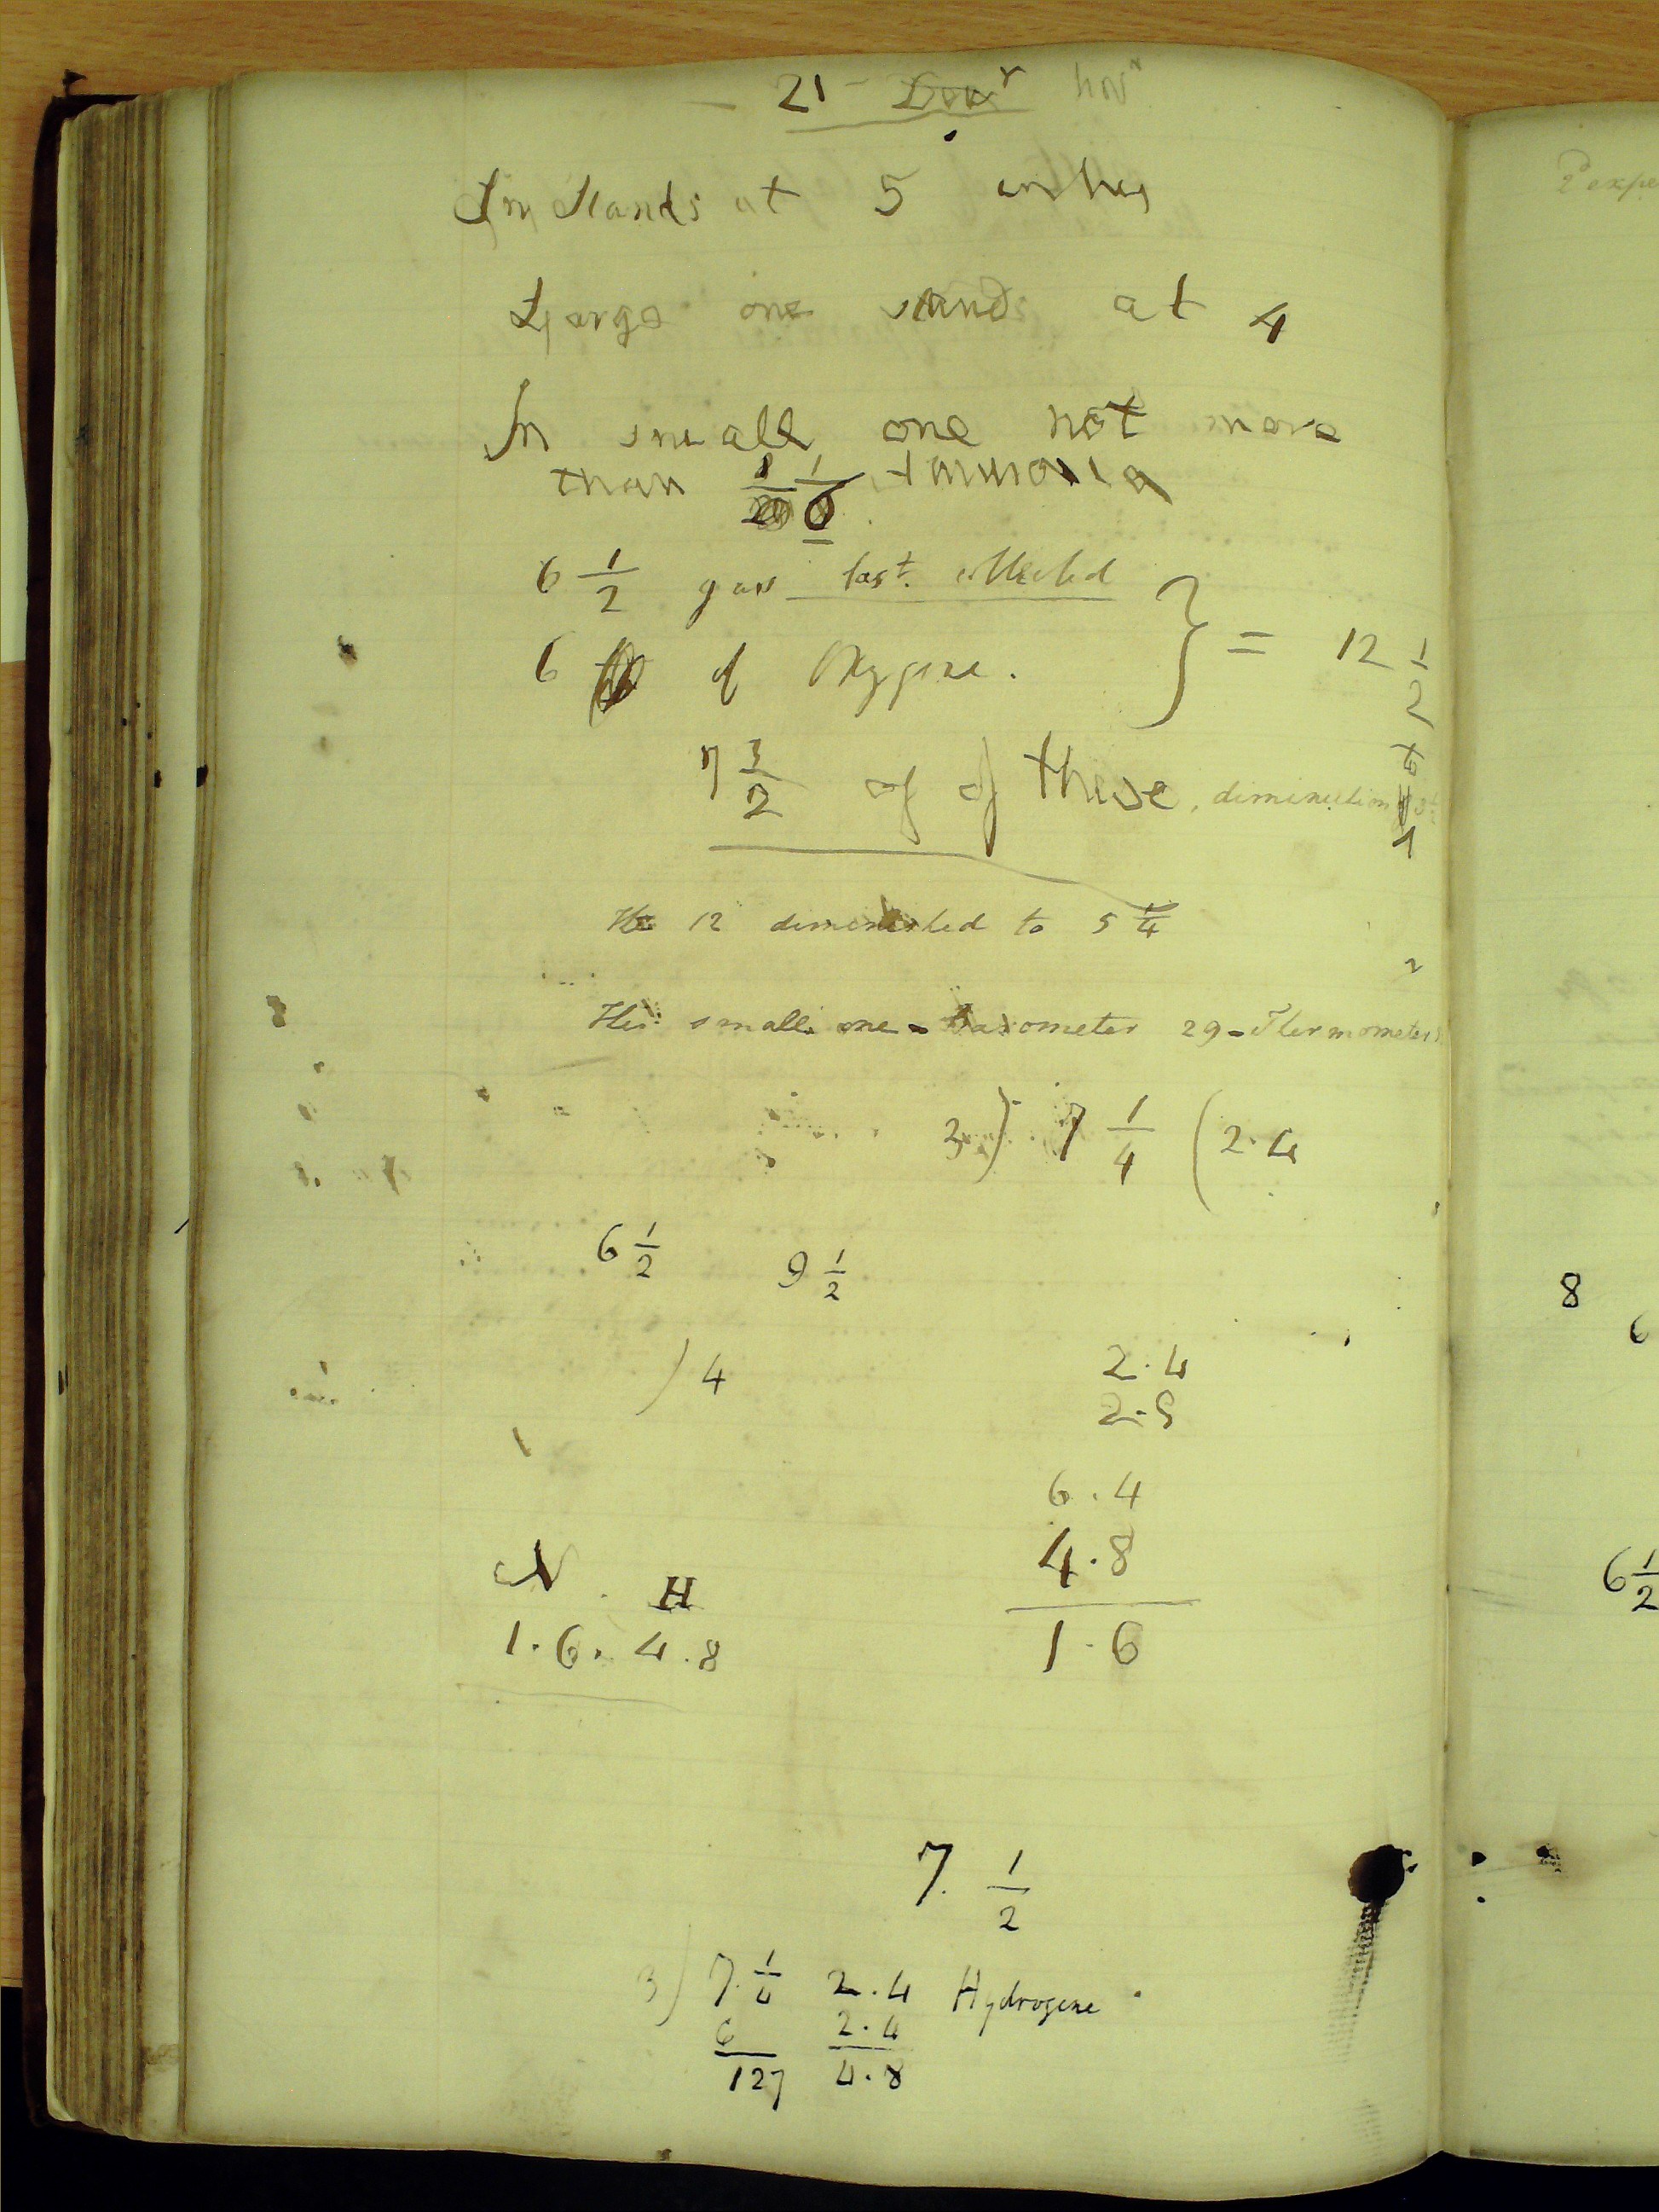 21 - Decr Novr
In stands at 5 inches
Large one stands at 4
In small one not more
than 1/6 Ammonia
6 1/2 gas last collected
6 of Oxygene. } = 12 1/2
7 3/2 of of these, diminution
The 12 diminished to 5 1/4
2
The small one - barometer 29 - Thermometer
3) 7 1/4 (2.4
6 1/2 9 1/2
) 4 2.4
2.5
6.4
4.8
N. H
1.6. 4.8 1.6
7. 1/2
3) 7. 1/4 2.4 Hydrogene
6 2.4
127 4.8
2 expe
8
6
6 1/2